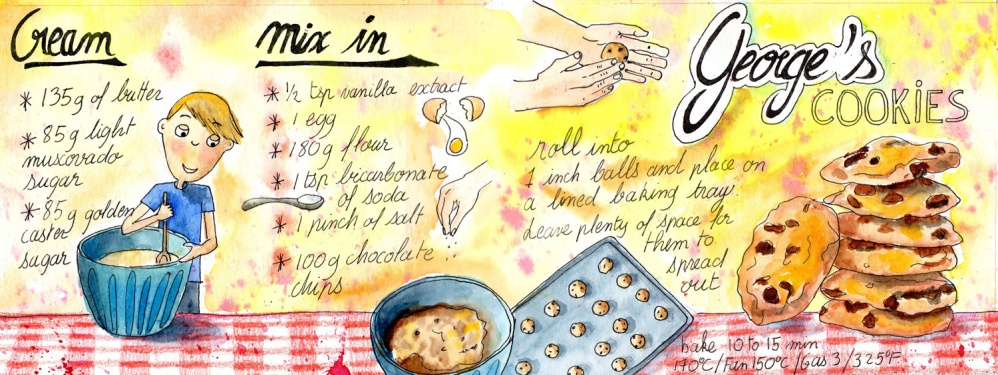 Cream
* 135g of butter
* 85g light
muscovado
sugar
* 85g golden
caster
sugar
mix in
* ½ tsp vanilla extract
* 1 egg
* 180g flour
* 1 tsp bicarbonate
of soda
* 1 pinch of salt
* 100g chocolate
chips
George's
COOKIES
roll into
1 inch balls and place on
a lined baking tray.
Leave plenty of space for
them to
spread
out
bake 10 to 15 min
170°C/Fan 150°C/Gas 3/325°F